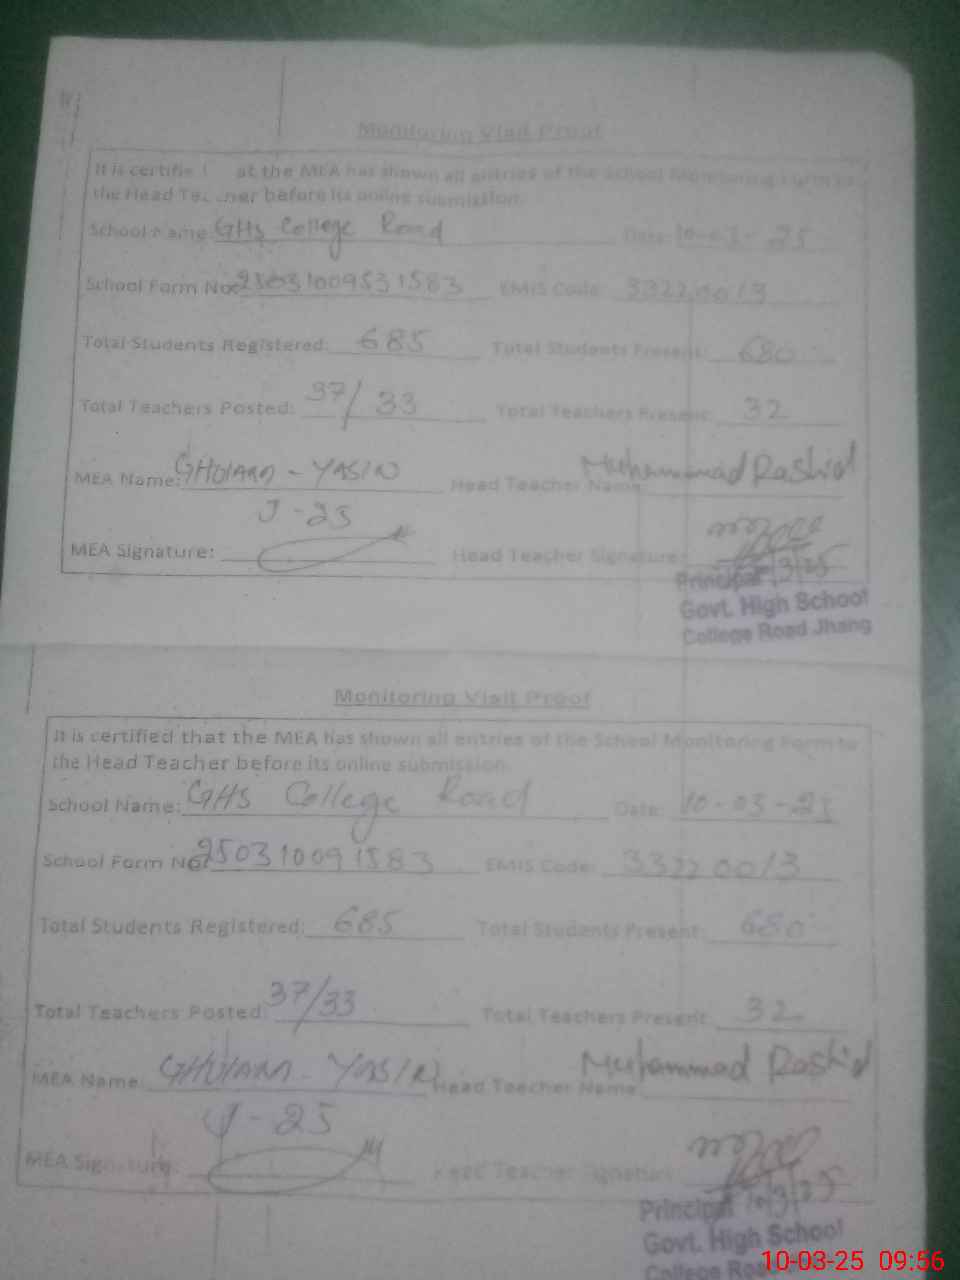 Monitoring Visit Proof
It is certifie at the MEA has shown all entries of the School Monitoring Form to
the Head Teacher before its online submission.
School Name: GHS College Road Date: 10-03-25
School Form No: 25031009531583 EMIS Code: 33220013
Total Students Registered: 685 Total Students Present: 680
Total Teachers Posted: 37/33 Total Teachers Present: 32
MEA Name: GHULAM - YASIN Head Teacher Name: Muhammad Rashid
J-25
MEA Signature: Head Teacher Signature:
Principal
Govt. High School
College Road Jhang
Monitoring Visit Proof
It is certified that the MEA has shown all entries of the School Monitoring Form to
the Head Teacher before its online submission.
School Name: GHS College Road Date: 10-03-25
School Form No: 250310091583 EMIS Code: 33220013
Total Students Registered: 685 Total Students Present: 680
Total Teachers Posted: 37/33 Total Teachers Present: 32
MEA Name: GHULAM - YASIN Head Teacher Name: Muhammad Rashid
J-25
MEA Signature: Head Teacher Signature:
Principal 10/3/25
Govt. High School
College Road
10-03-25 09:56